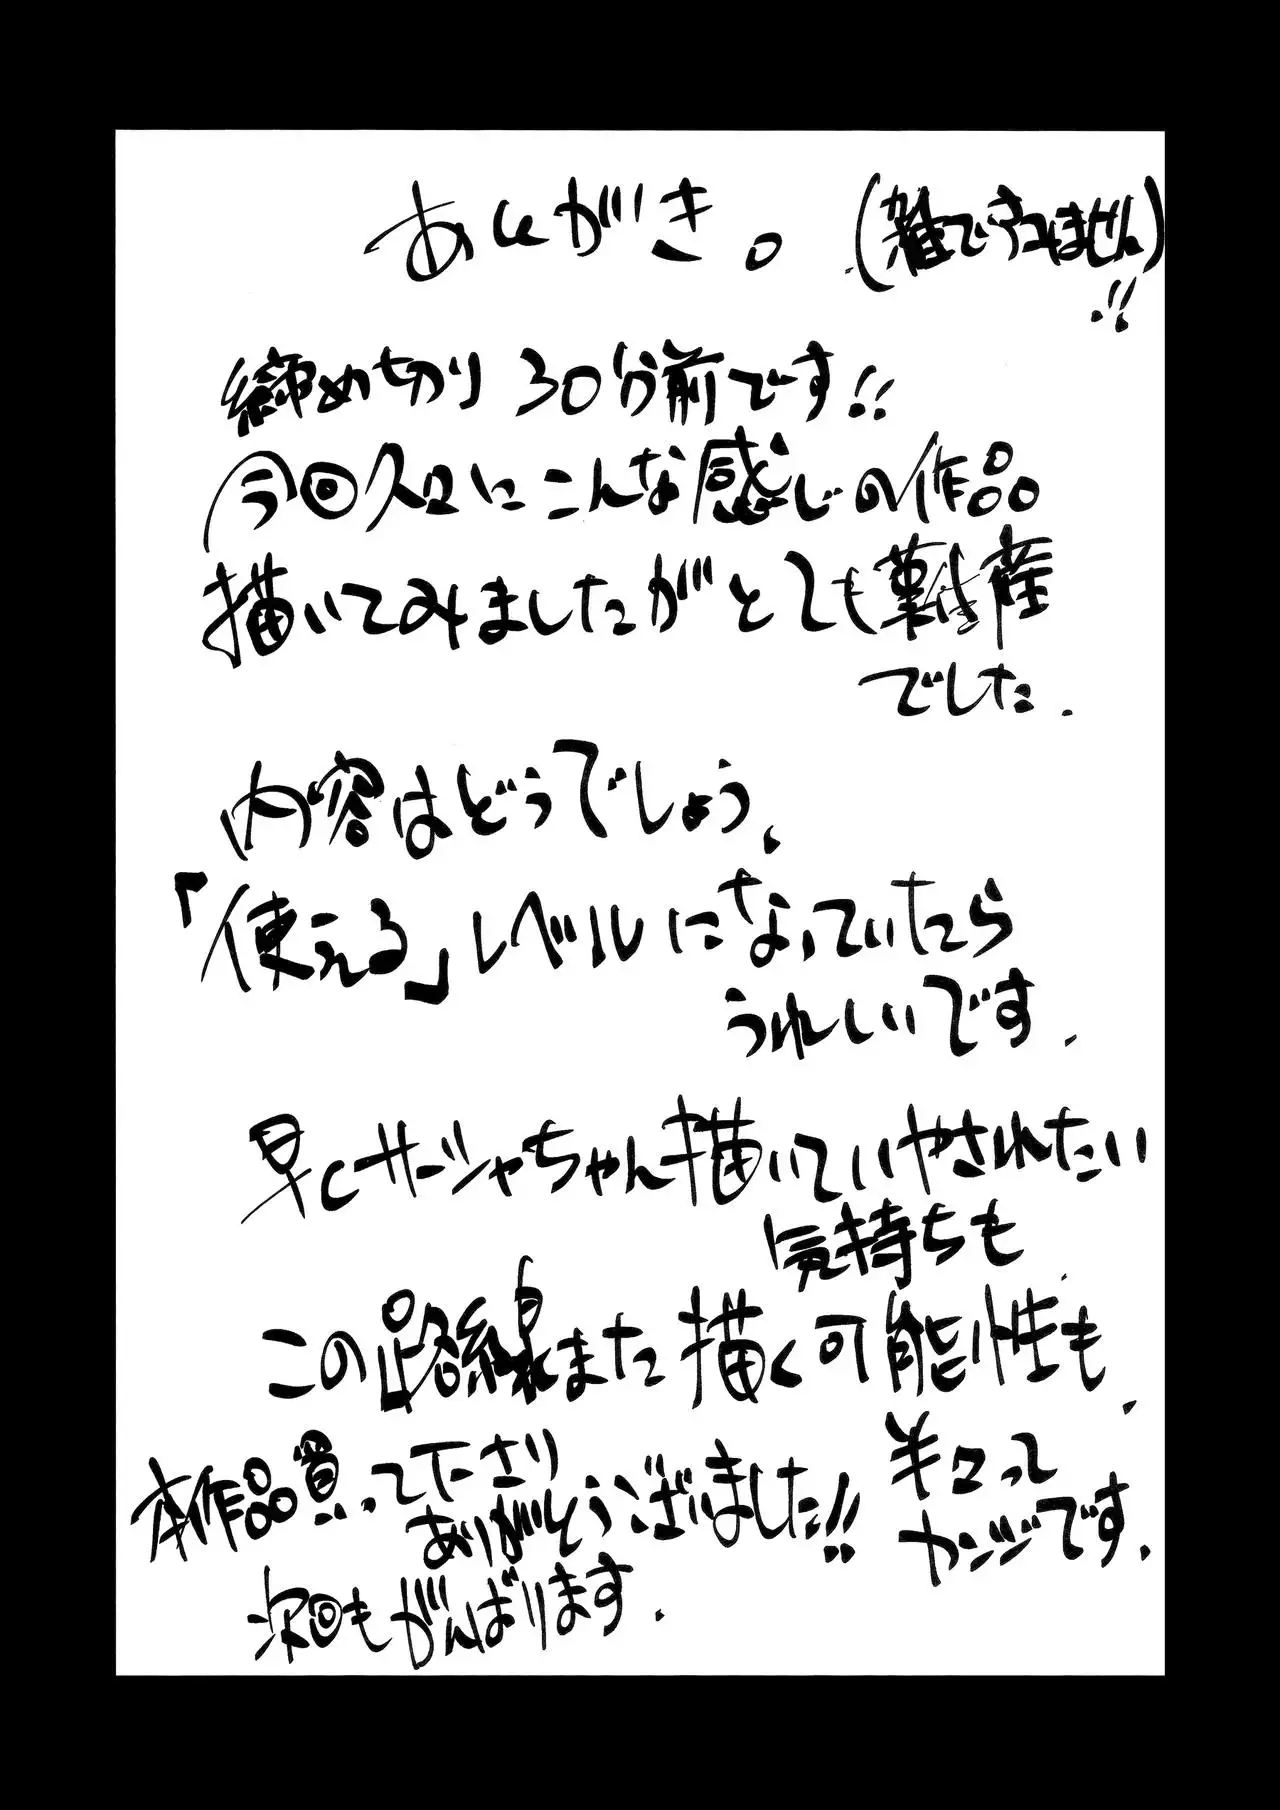 あとがき。
(雑ですみません)
!!
締め切り30分前です!!
今回久々にこんな感じの作品
描いてみましたがとても難産
でした.
内容はどうでしょう、
「使える」レベルになっていたら
うれしいです.
早くサーシャちゃん描いていやされたい
気持ちも
この路線また描く可能性も、
半々って
カンジです.
本作品買って下さり
ありがとうございました!!
次回もがんばります.